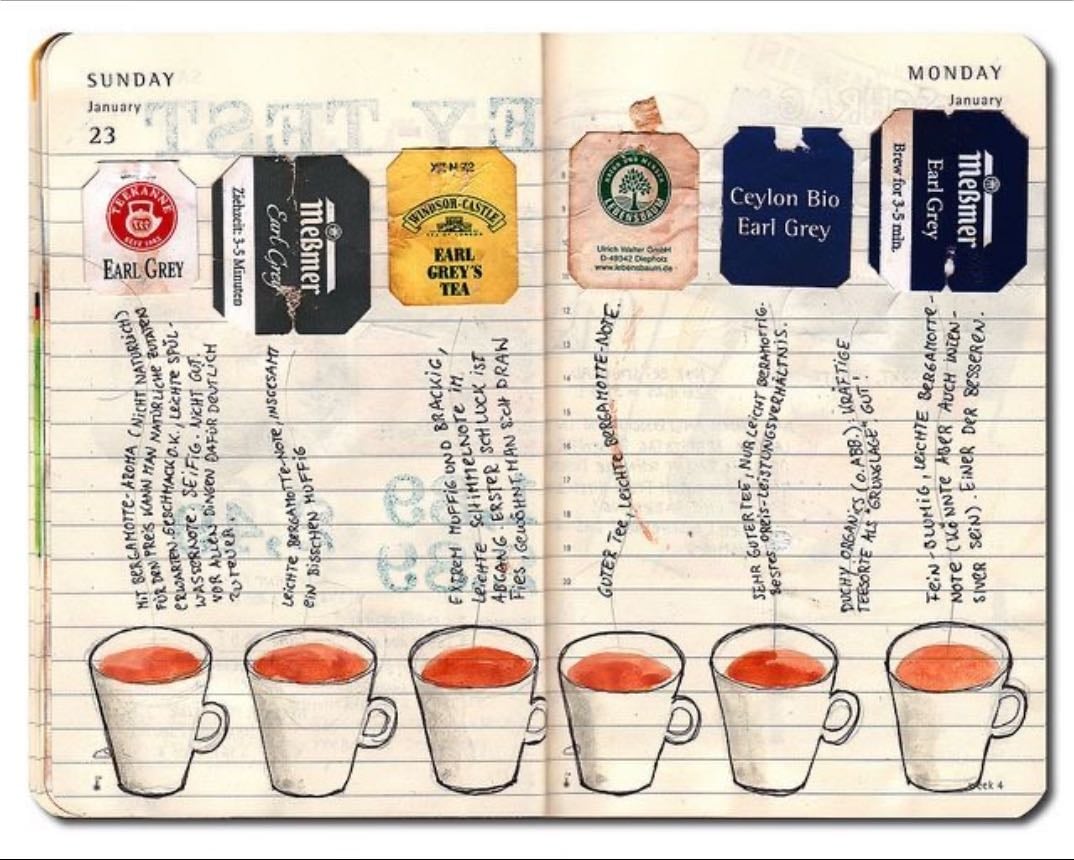 SUNDAY
January
23
TEEKANNE
SEIT 1882
EARL GREY
Meßmer
Earl Grey
Ziehzeit: 3-5 Minuten
WINDSOR-CASTLE
TEA OF LONDON
EARL
GREY'S
TEA
MIT BERGAMOTTE-AROMA (NICHT NATÜRLICH)
FÜR DEN PREIS KANN MAN NATÜRLICHE ZUTATEN
ERWARTEN. GESCHMACK O.K., LEICHTE SPÜL-
WASSERNOTE. SEIFIG. NICHT GUT.
VOR ALLEN DINGEN DAFÜR DEUTLICH
ZU TEUER.
LEICHTE BERGAMOTTE-NOTE, INSGESAMT
EIN BISSCHEN MUFFIG
EXTREM MUFFIG UND BRACKIG,
LEICHTE SCHIMMELNOTE IM
ABGANG. ERSTER SCHLUCK IST
FIES, GEWÖHNT MAN SICH DRAN
MONDAY
January
LEBENSBAUM
Ulrich Walter GmbH
D-49342 Diepholz
www.lebensbaum.de
Ceylon Bio
Earl Grey
Meßmer
Earl Grey
Brew for 3-5 min.
GUTER TEE, LEICHTE BERGAMOTTE-NOTE.
SEHR GUTER TEE, NUR LEICHT BERGAMOTTIG.
BESTES PREIS-LEISTUNGSVERHÄLTNIS.
DUCHY ORGANICS (O. ABB.) KRÄFTIGE
TEESORTE ALS "GRUNDLAGE" GUT!
FEIN-BLUMIG, LEICHTE BERGAMOTTE-
NOTE (KÖNNTE ABER AUCH INTEN-
SIVER SEIN). EINER DER BESSEREN.
12
13
14
15
16
17
18
19
20
week 4